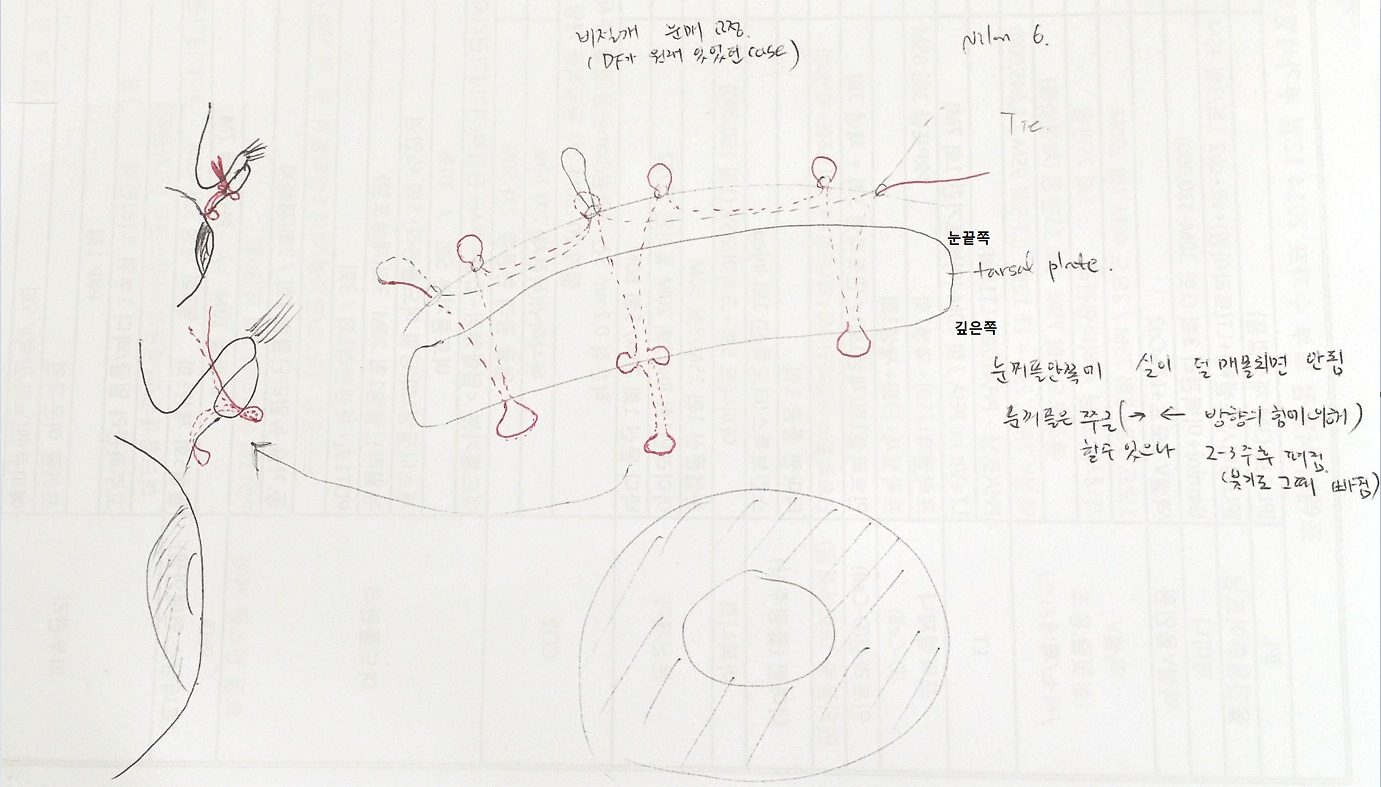 비절개 눈매 교정.
(DF가 원래 있었던 case)
Nilon 6.
Tie.
눈끝쪽
tarsal plate.
깊은쪽
눈꺼플안쪽에 실이 덜 매몰되면 안됨
눈꺼플은 쭈글(→ ← 방향의 힘에 의해)
할수 있으나 2-3주후 펴짐.
(붓기도 그때 빠짐)